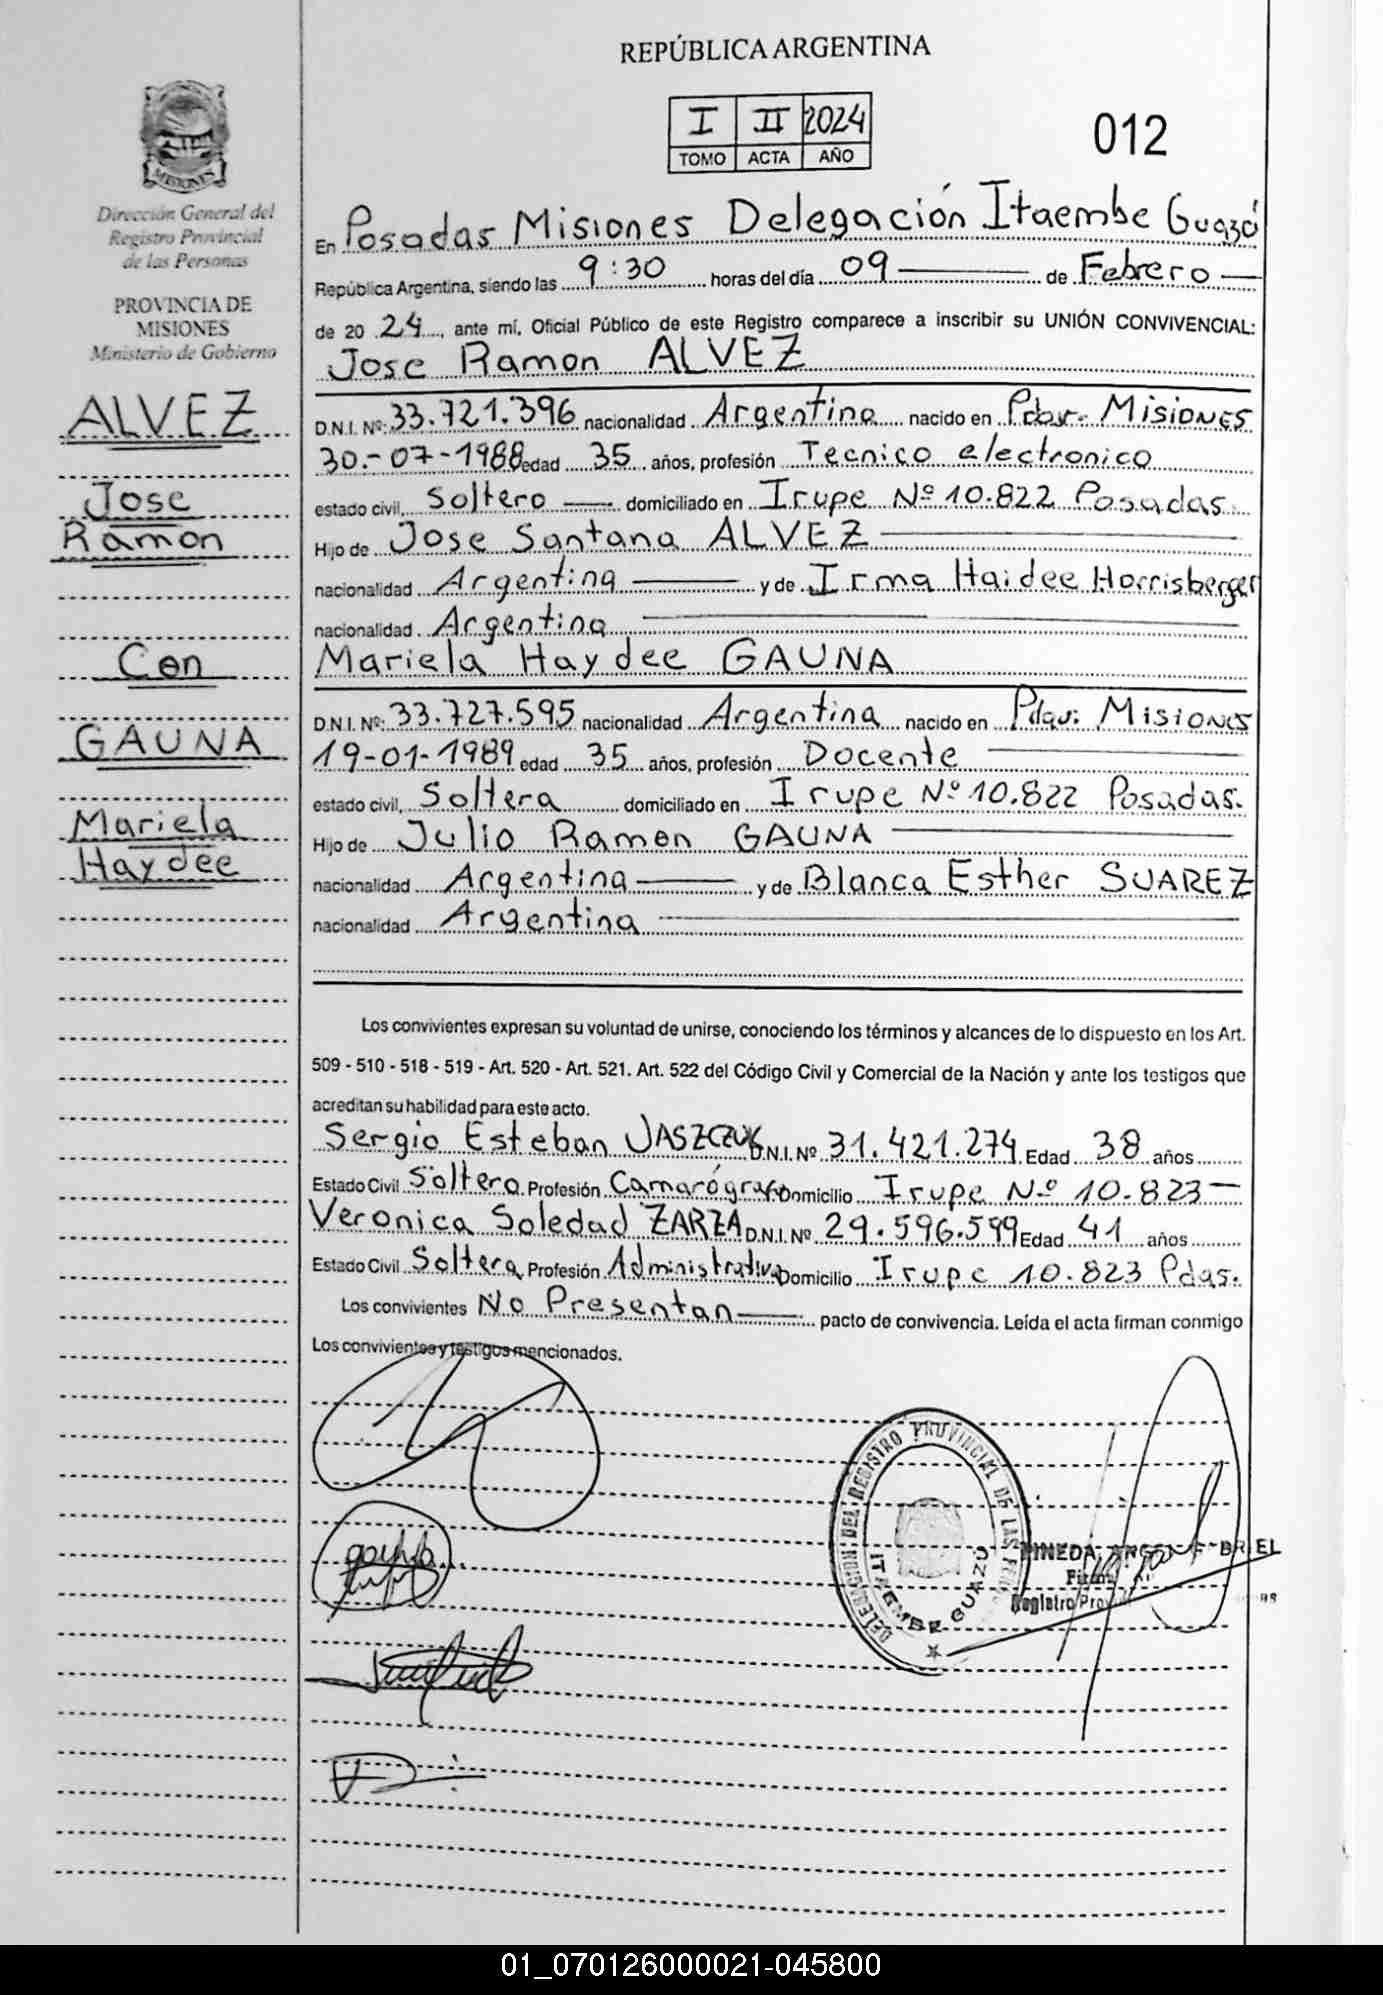 REPÚBLICA ARGENTINA
I II 2024
TOMO ACTA AÑO
012
MISIONES
Dirección General del
Registro Provincial
de las Personas
PROVINCIA DE
MISIONES
Ministerio de Gobierno
ALVEZ
Jose
Ramon
Con
GAUNA
Mariela
Haydee
En Posadas Misiones Delegación Itaembe Guazú
República Argentina, siendo las 9:30 horas del día 09 de Febrero
de 20 24, ante mí, Oficial Público de este Registro comparece a inscribir su UNIÓN CONVIVENCIAL:
Jose Ramon ALVEZ
D.N.I. Nº: 33.721.396 nacionalidad Argentina nacido en Misiones
30-07-1988 edad 35 años, profesión Tecnico electronico
estado civil, Soltero domiciliado en Irupe Nº 10.822 Posadas.
Hijo de Jose Santana ALVEZ
nacionalidad Argentina y de Irma Haidee Horrisberger
nacionalidad Argentina
Mariela Haydee GAUNA
D.N.I. Nº: 33.727.595 nacionalidad Argentina nacido en Misiones
19-01-1989 edad 35 años, profesión Docente
estado civil, Soltera domiciliado en Irupe Nº 10.822 Posadas.
Hijo de Julio Ramon GAUNA
nacionalidad Argentina y de Blanca Esther SUAREZ
nacionalidad Argentina
Los convivientes expresan su voluntad de unirse, conociendo los términos y alcances de lo dispuesto en los Art.
509 - 510 - 518 - 519 - Art. 520 - Art. 521. Art. 522 del Código Civil y Comercial de la Nación y ante los testigos que
acreditan su habilidad para este acto.
Sergio Esteban JASZCZUK D.N.I. Nº 31.421.274 Edad 38 años
Estado Civil Soltero Profesión Camarógrafo Domicilio Irupe Nº 10.823
Veronica Soledad ZARZA D.N.I. Nº 29.596.599 Edad 41 años
Estado Civil Soltera Profesión Administrativa Domicilio Irupe 10.823 Pdas.
Los convivientes No Presentan pacto de convivencia. Leída el acta firman conmigo
Los convivientes y testigos mencionados.
DELEGACION DEL REGISTRO PROVINCIAL DE LAS
ITAEMBE GUAZU
PINEDA
Registro
01_070126000021-045800